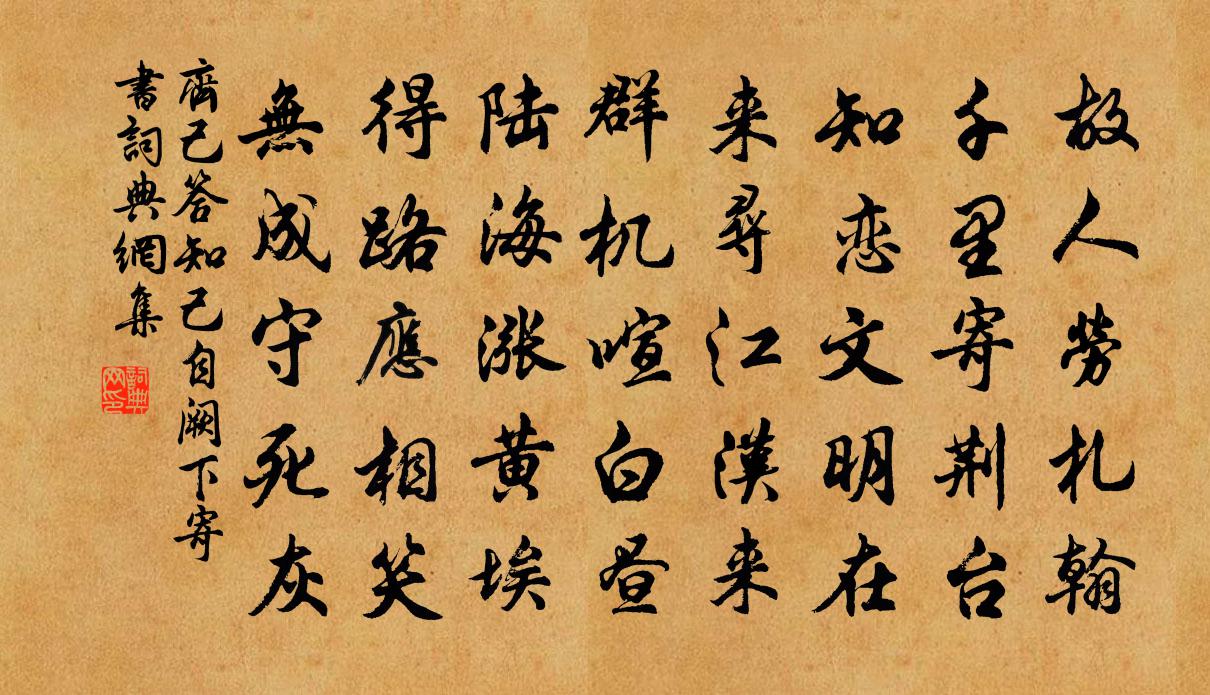 故人劳札翰
千里寄荆台
知恋文明在
来尋江漢来
群机喧白昼
陆海漲黄埃
得路應相笑
無成守死灰
齊己答知己自阙下寄
書詞典網集
詞典
网印